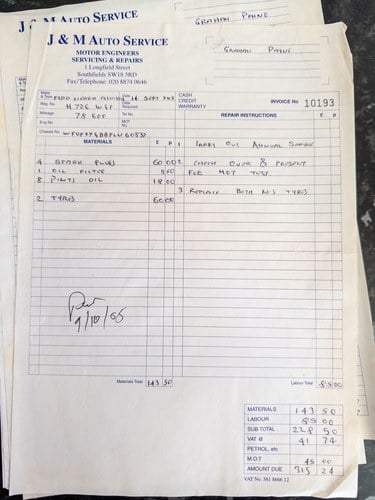 J & M AUTO SERVICE
GRAHAM PAINE
J & M AUTO SERVICE
MOTOR ENGINEERS
SERVICING & REPAIRS
1 Longfield Street
Southfields SW18 5RD
Fax/Telephone: 020 8874 0646
GRAHAM PAINE
Make & Type FORD Date 14 SEPT
CASH
CREDIT
WARRANTY
INVOICE No 10193
Reg. No. Tel No
Mileage 78 600 MOT No.
Eng No
Chassis No
MATERIALS £ P
REPAIR INSTRUCTIONS £ P
1 CARRY OUT ANNUAL SERVICE
4 SPARK PLUGS 60 00
2 CHECK OVER & PRESENT
1 OIL FILTER 5 50
FOR MOT TEST.
8 PINTS OIL 18 00
3 REPLACE BOTH N/S TYRES
2 TYRES 60 00
9/10/05
Materials Total 143 50
Labour Total 85 00
MATERIALS 143 50
LABOUR 85 00
SUB TOTAL 228 50
VAT @ 41 74
PETROL, etc
M.O.T 45 00
AMOUNT DUE 315 24
VAT No. 561 8666 12